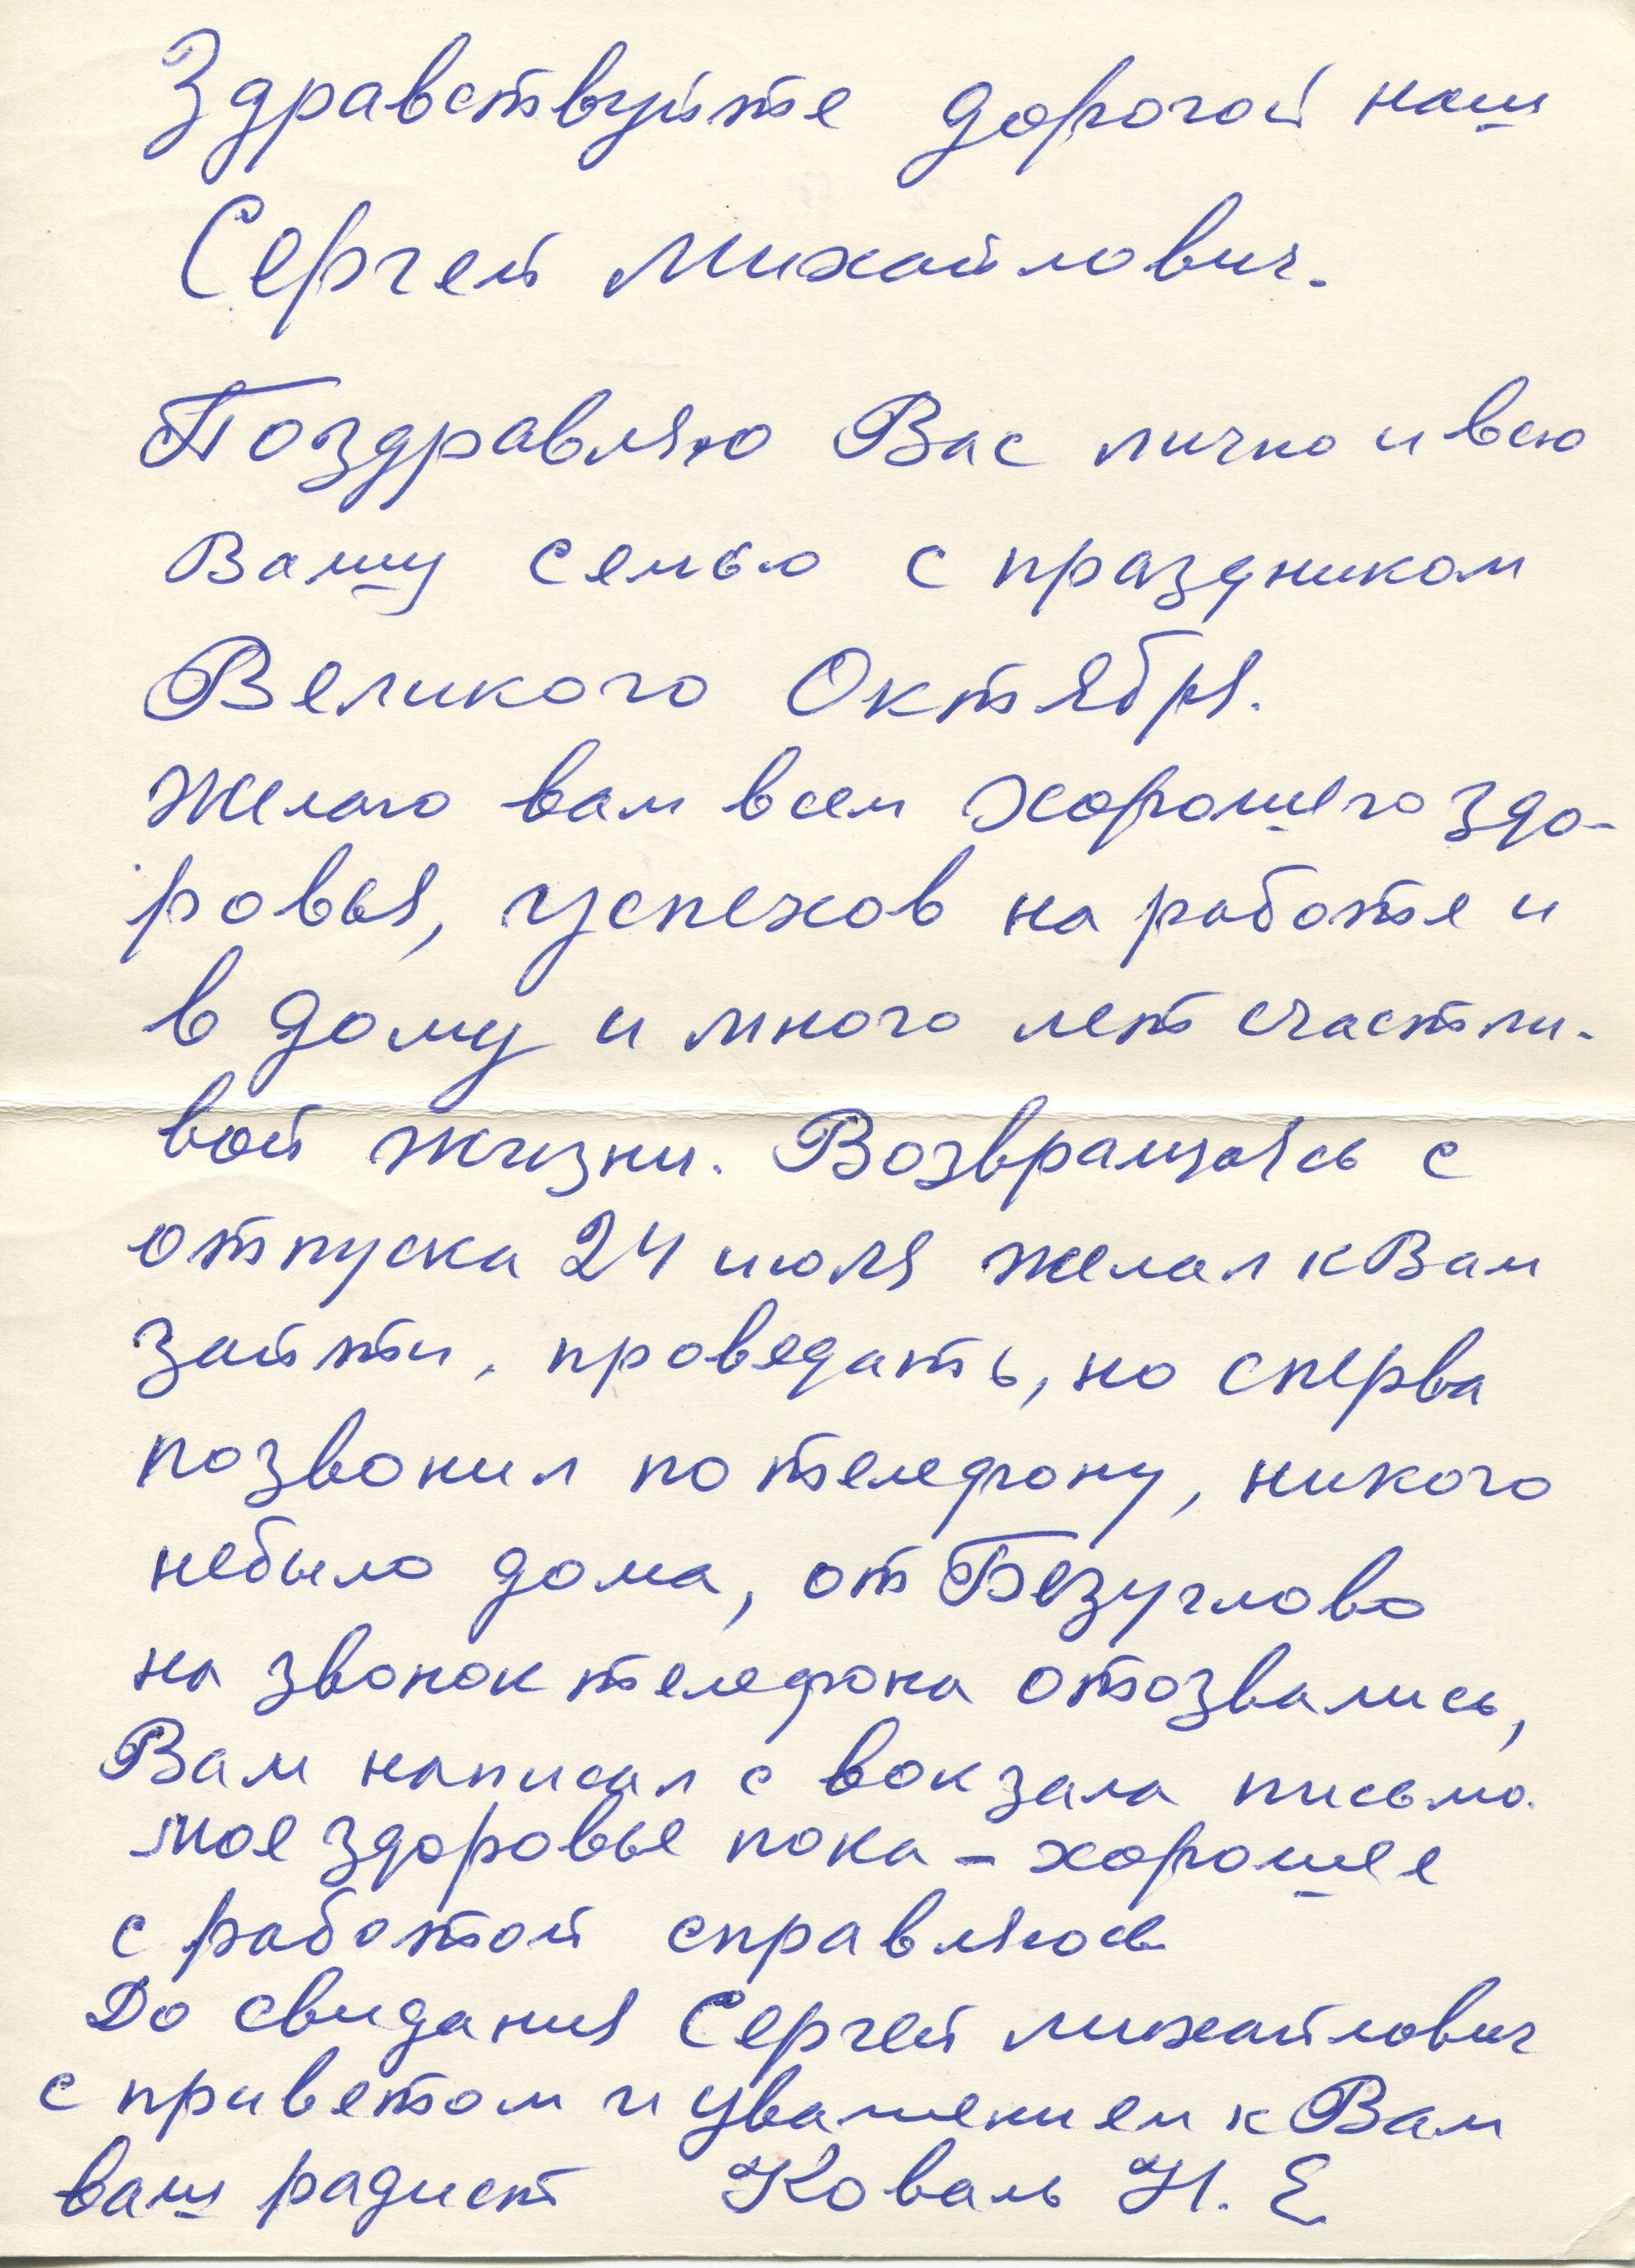 Здравствуйте дорогой наш
Сергей Михайлович.
Поздравляю Вас лично и всю
Вашу семью с праздником
Великого Октября.
Желаю вам всем хорошего здо-
ровья, успехов на работе и
в дому и много лет счастли-
вой жизни. Возвращаясь с
отпуска 24 июля желал к Вам
зайти, проведать, но сперва
позвонил по телефону, никого
небыло дома, от Безуглово
на звонок телефона отозвались,
Вам написал с вокзала письмо.
Мое здоровье пока – хорошее
с работой справляюсь
До свидания Сергей Михайлович
с приветом и уважением к Вам
ваш радист Коваль Н. Е